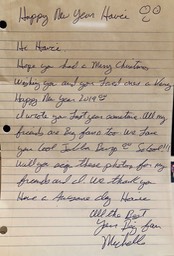 Happy New Year Howie
Hi Howie
Hope you had a Merry Christmas
Wishing you and your Family a Very
Happy New Year 2019
I wrote you last year sometime. All my
friends are Big fans too. We Love
you
Will you sign these photos for my
friends and I. We thank you
Have a Awesome day Howie
All the Best
Your Big fan
Michelle